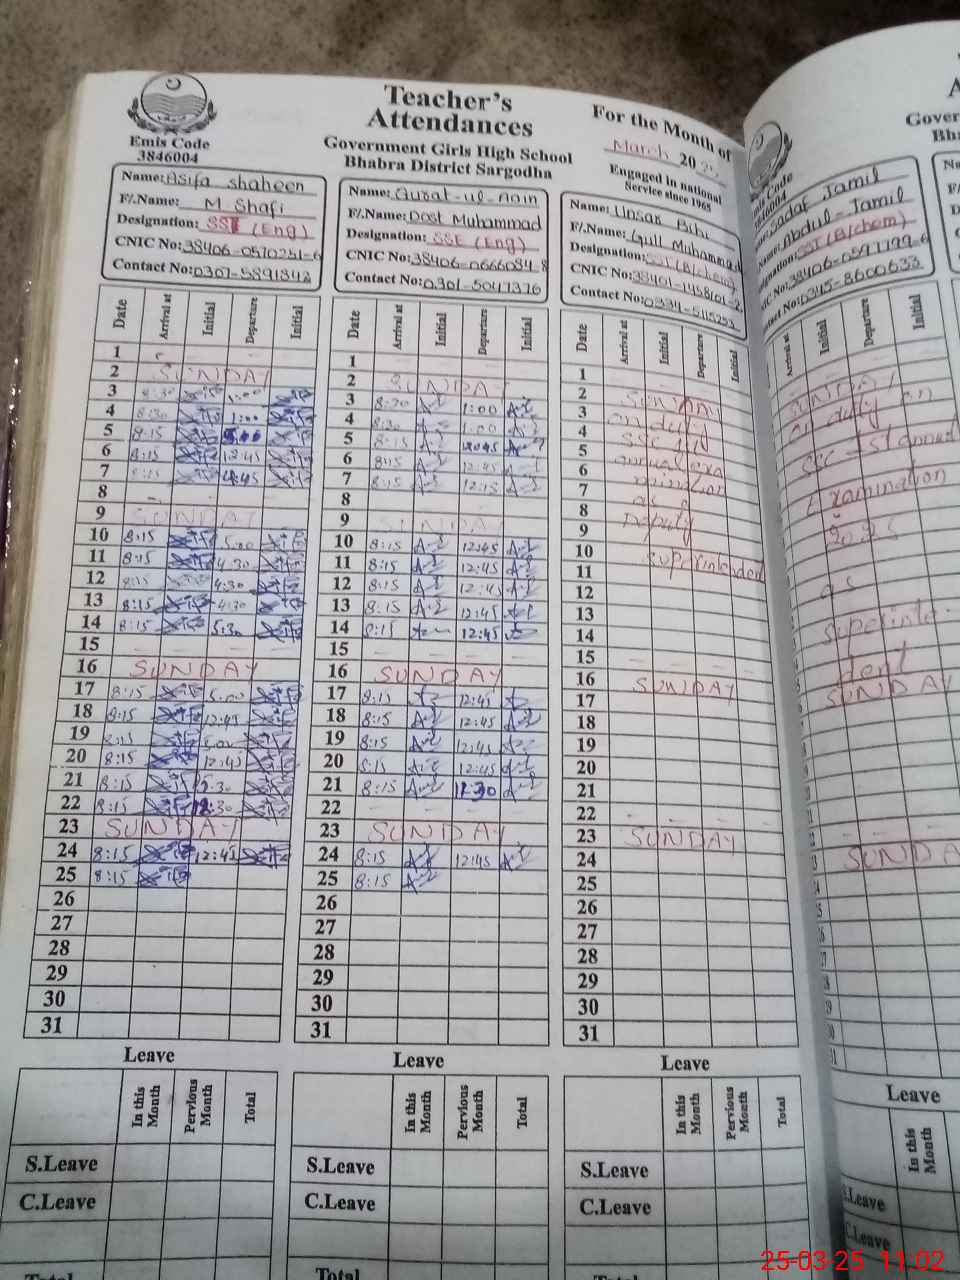 Teacher's
Attendances
Government Girls High School
Bhabra District Sargodha
For the Month of
March 20
Engaged in national
Service since 1965
Emis Code
3846004
Name: Asifa Shaheen
F/.Name: M. Shafi
Designation: SST (Eng)
CNIC No: 38406-0570251-6
Contact No: 0307-5891842
Name: Qurat-ul-Aain
F/.Name: Dost Muhammad
Designation: SSE (Eng)
CNIC No: 38406-0666084-8
Contact No: 0301-5047376
Name: Unsar Bibi
F/.Name: Gull Muhammad
Designation:
CNIC No: 38401-1458101-2
Contact No: 0334-5115253
Sadaf Jamil
Abdul-Jamil
SST (B/chem)
38406-0597799-6
0345-8600633
Date Arrival at Initial Departure Initial
1
2 SUNDAY
3 8:30 1:00
4 8:30 1:00
5 8:15
6 8:15 12:45
7 8:15
8
9 SUNDAY
10 8:15 5:00
11 8:15 4:30
12 8:15 4:30
13 8:15 4:30
14 8:15 5:30
15
16 SUNDAY
17 8:15 5:00
18 8:15 12:45
19 8:15 5:00
20 8:15 12:45
21 8:15 5:30
22 8:15
23 SUNDAY
24 8:15 12:45
25 8:15
26
27
28
29
30
31
Date Arrival at Initial Departure Initial
1
2 SUNDAY
3 8:30 1:00
4 8:30 1:00
5 8:15 12:45
6 8:15 12:45
7 8:15 12:15
8
9 SUNDAY
10 8:15 12:45
11 8:15 12:45
12 8:15 12:45
13 8:15 12:45
14 8:15 12:45
15
16 SUNDAY
17 8:15 12:45
18 8:15 12:45
19 8:15 12:45
20 8:15 12:45
21 8:15
22
23 SUNDAY
24 8:15 12:45
25 8:15
26
27
28
29
30
31
Date Arrival at Initial Departure Initial
1
2 SUNDAY
3 on duty
4 SSC
5 annual exa
6 mination
7 as a
8 Deputy
9
10 superintendent
11
12
13
14
15
16 SUNDAY
17
18
19
20
21
22
23 SUNDAY
24
25
26
27
28
29
30
31
Arrival at Initial Departure Initial
SUNDAY
on duty in
SSC 1st annual
Examination
2025
as
superinte-
dent
SUNDAY
SUNDA
Leave
In this Month Pervious Month Total
S.Leave
C.Leave
Total
Leave
In this Month Pervious Month Total
S.Leave
C.Leave
Total
Leave
In this Month Pervious Month Total
S.Leave
C.Leave
Total
Leave
In this Month
S.Leave
C.Leave
25-03-25 11:02